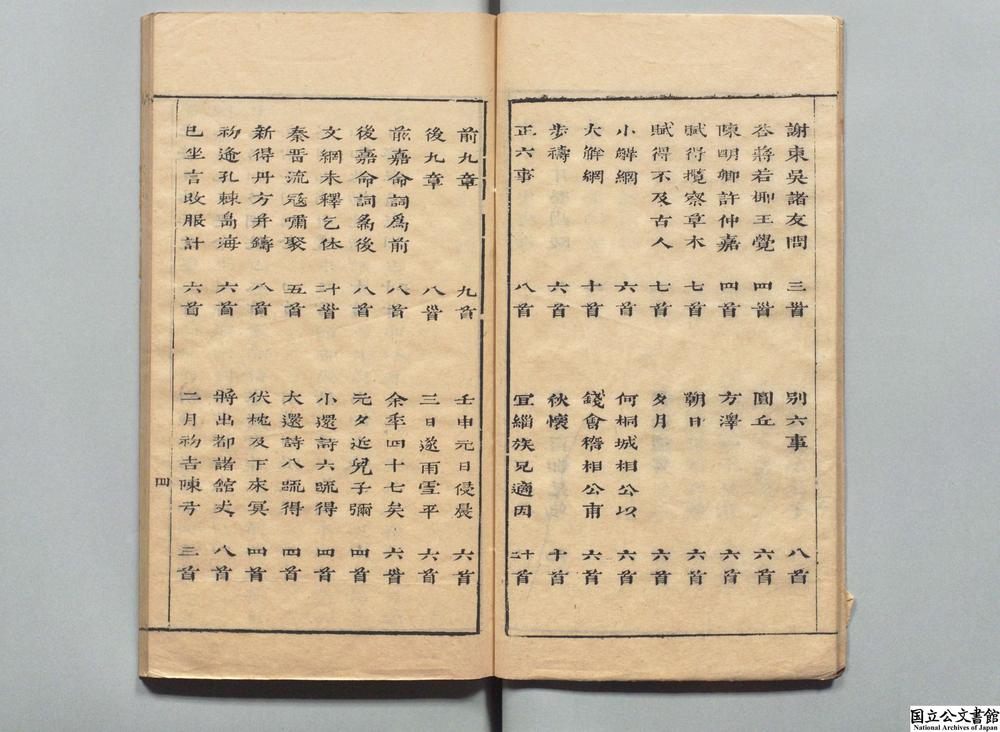 謝東吳諸友問 三首 別六事 八首
答蔣若椰王覺 四首 圜丘 六首
陳明卿許仲嘉 四首 方澤 六首
賦得攬察草木 七首 朝日 六首
賦得不及古人 七首 夕月 六首
小解網 六首 何桐城相公以 六首
大解網 十首 錢會稽相公甫 六首
步禱 六首 秋懷 十首
正六事 八首 宜緇族兄適因 二十首
前九章 九首 壬申元日侵晨 六首
後九章 八首 三日遂雨雪平 六首
前嘉命詞為前 八首 余年四十七矣 六首
後嘉命詞為後 八首 元夕近兒子彌 四首
文網未釋乞休 二十首 小還詩六疏得 四首
秦晉流寇嘯聚 五首 大還詩八疏得 四首
新得丹方并鑄 八首 伏枕及下來冥 四首
初逄孔棘島海 六首 將出都諸館丈 八首
已坐言改服計 六首 二月初吉陳弓 三首
四
国立公文書館
National Archives of Japan